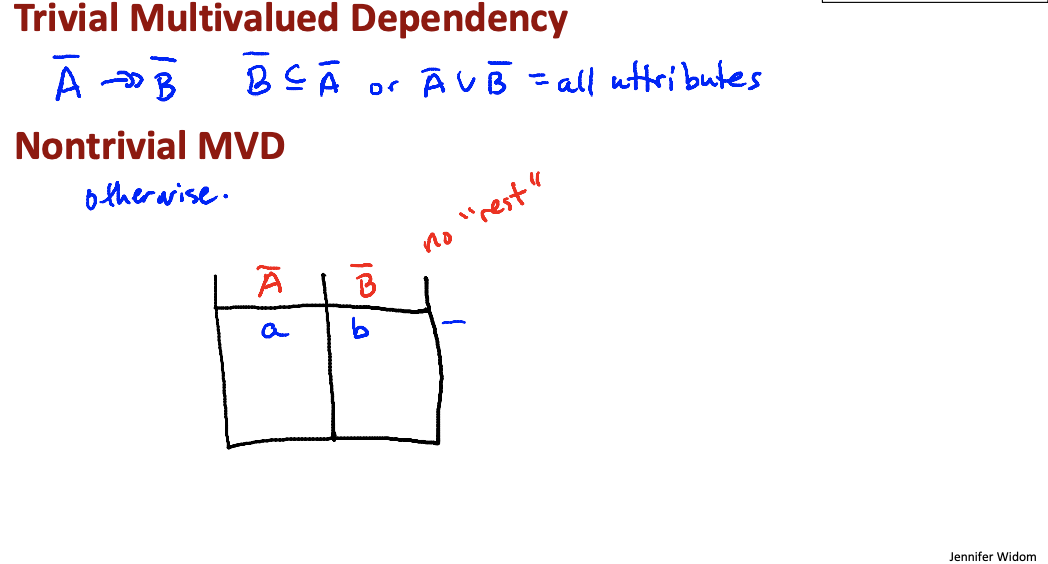 Trivial Multivalued Dependency
A̅ ↠ B̅   B̅ ⊆ A̅ or A̅ ∪ B̅ = all attributes
Nontrivial MVD
otherwise.
no "rest"
A̅ B̅
a b –
Jennifer Widom